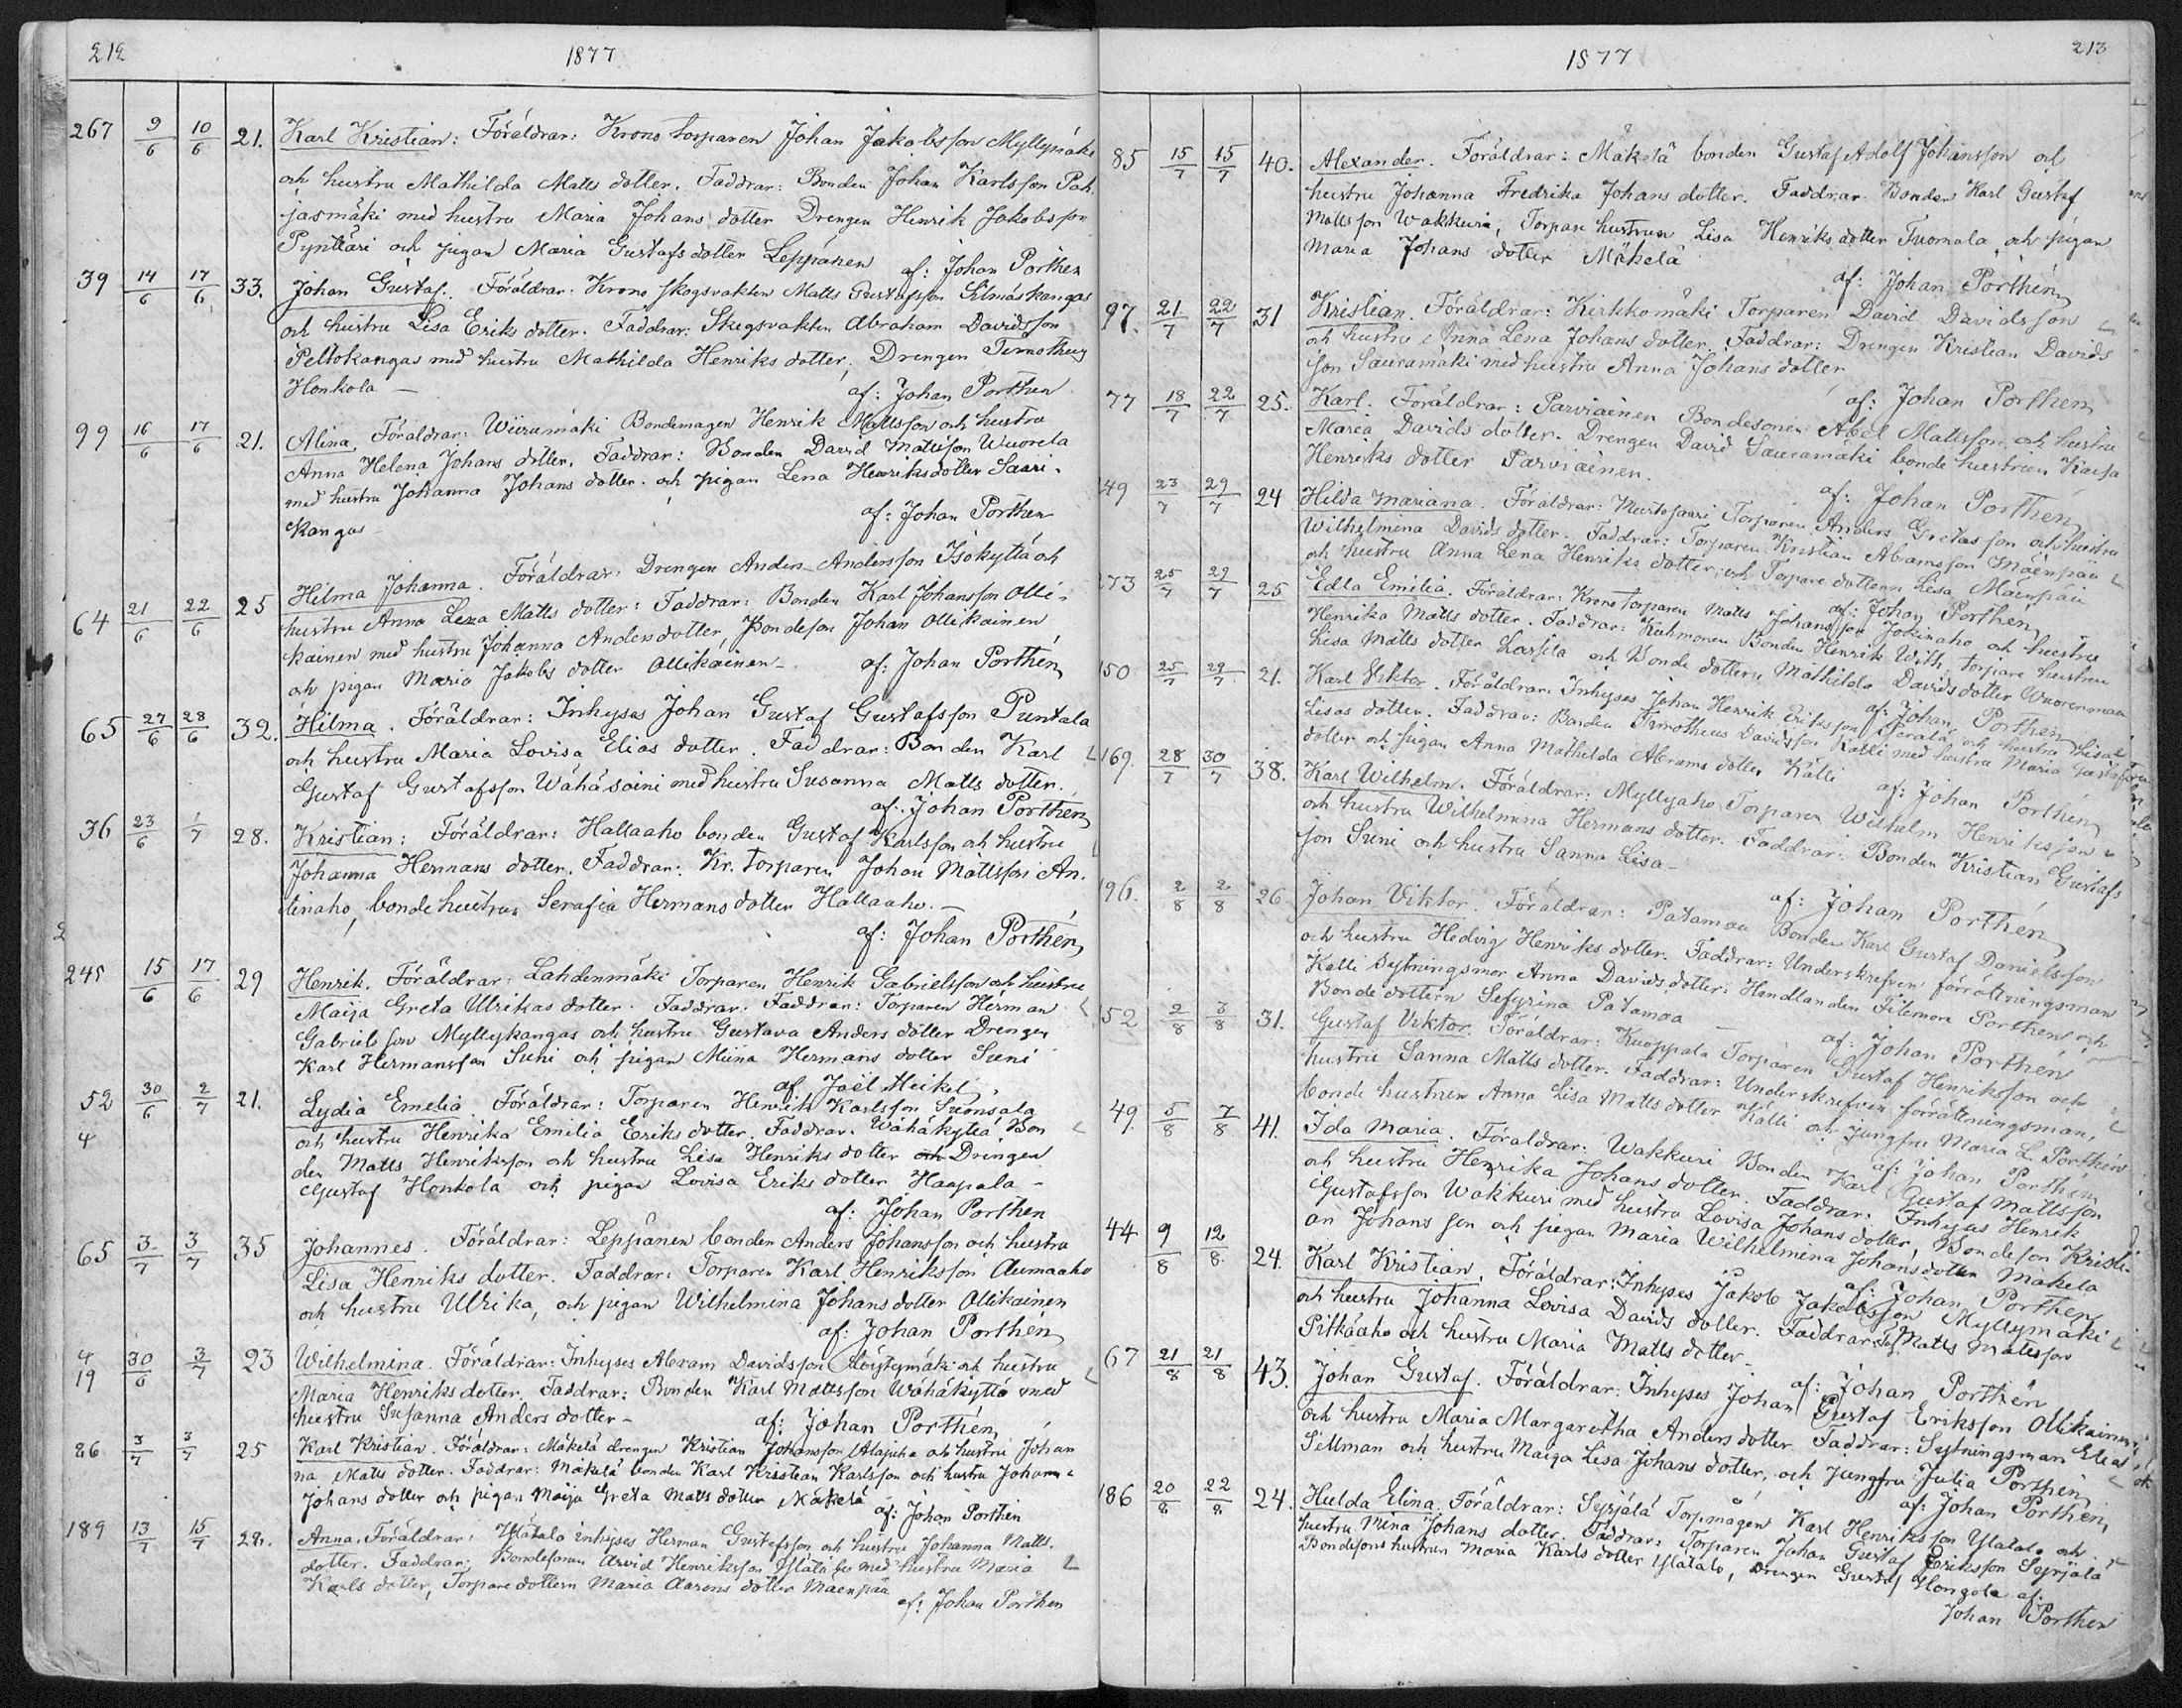 212
1877
267 9/6 10/6 21. Karl Kristian: Föräldrar: Krono torparen Johan Jakobsson Myllymäki
och hustru Mathilda Matts dotter. Faddrar: Bonden Johan Karlsson Pah-
jasmäki med hustru Maria Johans dotter Drengen Henrik Jakobsson
Pynttäri och pigan Maria Gustafs dotter Leppänen af: Johan Porthen
39 14/6 17/6 33. Johan Gustaf. Föräldrar. Krono skogsvakten Matts Gustafsson Silmäskangas
och hustru Lisa Eriks dotter. Faddrar: Skogsvakten Abraham Davidsson
Peltokangas med hustru Mathilda Henriks dotter; Drengen Timotheus
Honkola — af: Johan Porthen
99 16/6 17/6 21. Alina. Föräldrar: Wiiramäki Bondemagen Henrik Mattsson och hustru
Anna Helena Johans dotter. Faddrar: Bonden David Mattsson Wuorela
med hustru Johanna Johans dotter. och pigan Lena Henriksdotter Saari-
kangas — af: Johan Porthen
64 21/6 22/6 25 Hilma Johanna. Föräldrar: Drengen Anders Andersson Isokyttä och
hustru Anna Lena Matts dotter: Faddrar: Bonden Karl Johansson Olli-
kainen med hustru Johanna Andersdotter, Bondeson Johan Ollikainen
och pigan Maria Jakobs dotter Ollikainen — af: Johan Porthén
65 27/6 28/6 32. Hilma. Föräldrar: Inhyses Johan Gustaf Gustafsson Puntala
och hustru Maria Lovisa Elias dotter. Faddrar: Bonden Karl
Gustaf Gustafsson Wähäsoini med hustru Susanna Matts dotter.
af: Johan Porthén
36 23/6 1/7 28. Kristian: Föräldrar: Hallaaho bonden Gustaf Karlsson och hustru
Johanna Hermans dotter. Faddrar: Kr. torparen Johan Mattsson An-
tinaho, bonde hustrun Serafia Hermans dotter Hallaaho. —
af: Johan Porthén
2
245 15/6 17/6 29 Henrik. Föräldrar: Lahdenmäki Torparen Henrik Gabrielsson och hustru
Maija Greta Ulrikas dotter. Faddrar. Faddrar: Torparen Herman
Gabrielsson Myllykangas och hustru Gustava Anders dotter Drengen
Karl Hermansson Suni och pigan Miina Hermans dotter Suni
af Joël Heikel,
52 4 30/6 2/7 21. Lydia Emelia. Föräldrar: Torparen Henrik Karlsson Suonsala
och hustru Henrika Emilia Eriks dotter. Faddrar. Wähäkyttä Bon
den Matts Henriksson och hustru Lisa Henriks dotter och Drengen
Gustaf Honkola och pigan Lovisa Eriks dotter Haapala —
af: Johan Porthen
65 3/7 3/7 35 Johannes. Föräldrar: Leppänen bonden Anders Johansson och hustru
Lisa Henriks dotter. Faddrar: Torparen Karl Henriksson Aumaaho
och hustru Ulrika, och pigan Wilhelmina Johans dotter Ollikainen
af: Johan Porthén
4 19 30/6 3/7 23 Wilhelmina. Föräldrar: Inhyses Abram Davidsson Löytymäki och hustru
Maria Henriks dotter. Faddrar: Bonden Karl Mattsson Wähäkyttä med
hustru Susanna Anders dotter — af: Johan Porthén
86 3/7 3/7 25 Karl Kristian. Föräldrar: Mäkelä drengen Kristian Johansson Alapiha och hustru Johan
na Matts dotter. Faddrar: Mäkelä bonden Karl Kristian Karlsson och hustru Johanna
Johans dotter och pigan Maija Greta Matts dotter Mäkelä af: Johan Porthen
189 13/7 15/7 28. Anna. Föräldrar: Ylätalo inhyses Herman Gustafsson och hustru Johanna Matts.
dotter. Faddrar: Bondesonen Arvid Henriksson Ylätalo med hustru Maria
Karls dotter, Torpare dottern Maria Aarons dotter Mäenpää
af: Johan Porthen
213
1877
85 15/7 15/7 40. Alexander. Föräldrar: Mäkelä bonden Gustaf Adolf Johansson och
hustru Johanna Fredrika Johans dotter. Faddrar. Bonden Karl Gustaf
Mattsson Wakkuri, Torpare hustrun Lisa Henriks dotter Tuomala, och pigan
Maria Johans dotter Mäkelä
af: Johan Porthén
97. 21/7 22/7 31 Kristian. Föräldrar: Kirkkomäki Torparen David Davidsson
och hustru Anna Lena Johans dotter. Faddrar: Drengen Kristian Davids
son Sauramäki med hustru Anna Johans dotter
af: Johan Porthén
77 18/7 22/7 25. Karl. Föräldrar: Parviainen Bondesonen Abel Mattsson och hustru
Maria Davids dotter. Drengen David Sauramäki bonde hustrun Kaisa
Henriks dotter Parviainen.
af: Johan Porthén
49 23/7 29/7 24 Hilda Mariana. Föräldrar: Mustasaari Torparen Anders Gretas son och hustru
Wilhelmina Davids dotter. Faddrar: Torparen Kristian Abramsson Mäenpää
och hustru Anna Lena Henriks dotter, och Torpare dottern Lisa Mäenpää
af: Johan Porthén
273 25/7 29/7 25 Edla Emilia. Föräldrar: Krono torparen Matts Johansson Jokinaho och hustru
Henrika Matts dotter. Faddrar: Kuhmonen Bonden Henrik With, torpare hustrun
Lisa Matts dotter Lassila och Bonde dottern Mathilda Davids dotter Wuorenmaa
af: Johan Porthen
150 25/7 29/7 21. Karl Viktor. Föräldrar. Inhyses Johan Henrik Eriksson Perälä och hustru Lisa
Lisas dotter. Faddrar: Bonden Timotheus Davidsson Källi med hustru Maria Gustafs
dotter och pigan Anna Mathilda Abrams dotter Källi
af: Johan Porthén
169. 28/7 30/7 38. Karl Wilhelm. Föräldrar: Myllyaho Torparen Wilhelm Henriksson
och hustru Wilhelmina Hermans dotter. Faddrar: Bonden Kristian Gustafs
son Suni och hustru Sanna Lisa —
af: Johan Porthén
196. 2/8 2/8 26. Johan Viktor. Föräldrar: Patamaa Bonden Karl Gustaf Danielsson
och hustru Hedvig Henriks dotter. Faddrar: Underskrefven förrättningsman
Källi Sytningsmor Anna Davids dotter: Handlanden Filemon Porthens och
Bonde dottern Sefyrina Patamaa —
af: Johan Porthén
52 2/8 3/8 31. Gustaf Viktor. Föräldrar: Kuoppala Torparen Gustaf Henriksson och
hustru Sanna Matts dotter. Faddrar: Underskrefven förrättningsman,
bonde hustrun Anna Lisa Matts dotter Källi och Jungfru Maria L. Porthén
af: Johan Porthén
49. 5/8 7/8 41. Ida Maria. Föräldrar: Wakkuri Bonden Karl Gustaf Mattsson
och hustru Henrika Johans dotter. Faddrar: Inhyses Henrik
Gustafsson Wakkuri med hustru Lovisa Johans dotter, Bondeson Kristi-
an Johans son och pigan Maria Wilhelmina Johans dotter Mäkelä
af: Johan Porthen
44 9/8 12/8 24. Karl Kristian. Föräldrar: Inhyses Jakob Jakobsson Myllymäki
och hustru Johanna Lovisa Davids dotter. Faddrar: Matts Mattsson
Pitkäaho och hustru Maria Matts dotter —
af: Johan Porthén
67 21/8 21/8 43. Johan Gustaf. Föräldrar: Inhyses Johan Gustaf Eriksson Ollikainen
och hustru Maria Margaretha Anders dotter Faddrar: Sytningsman Elias
Sellman och hustru Maija Lisa Johans dotter, och jungfru Julia Porthén
af: Johan Porthen,
186 20/8 22/8 24. Hulda Elina. Föräldrar: Syrjälä Torpmågen Karl Henriksson Ylatalo och
hustru Mina Johans dotter. Faddrar: Torparen Johan Gustaf Eriksson Syrjälä
Bondesons hustrun Maria Karls dotter Ylätalo, Drengen Gustaf Hongola af:
Johan Porthen